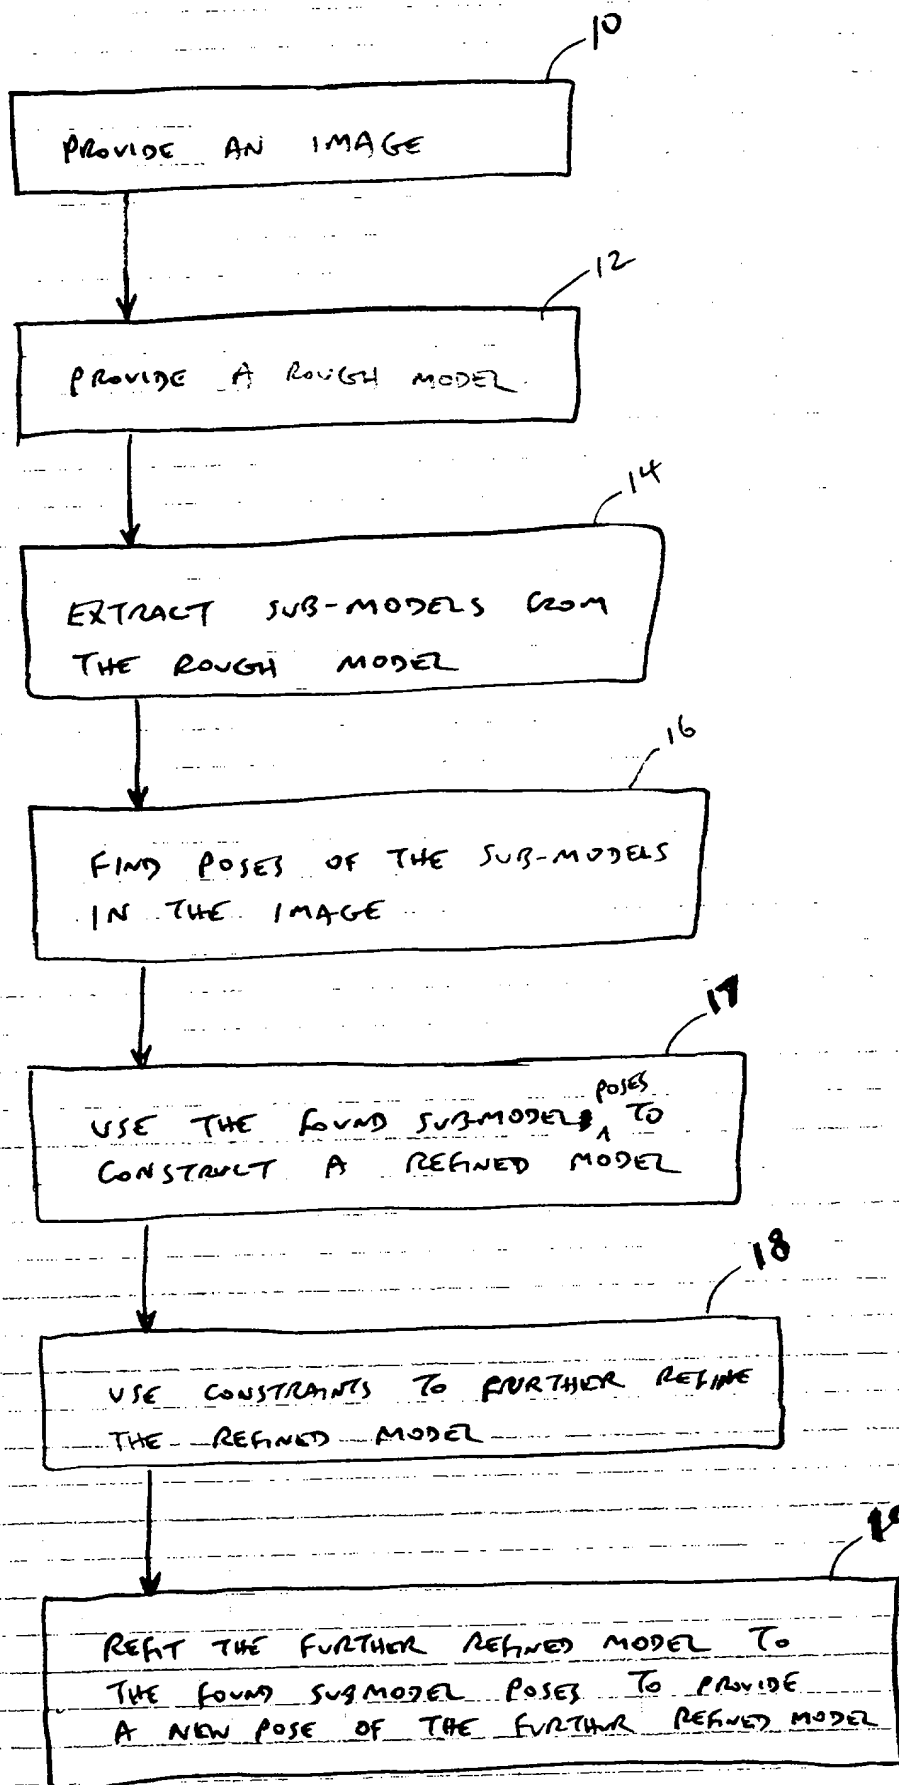 10
PROVIDE AN IMAGE
12
PROVIDE A ROUGH MODEL
14
EXTRACT SUB-MODELS FROM
THE ROUGH MODEL
16
FIND POSES OF THE SUB-MODELS
IN THE IMAGE
17
POSES
USE THE FOUND SUBMODEL TO
CONSTRUCT A REFINED MODEL
18
USE CONSTRAINTS TO FURTHER REFINE
THE REFINED MODEL
REFIT THE FURTHER REFINED MODEL TO
THE FOUND SUBMODEL POSES TO PROVIDE
A NEW POSE OF THE FURTHUR REFINED MODEL